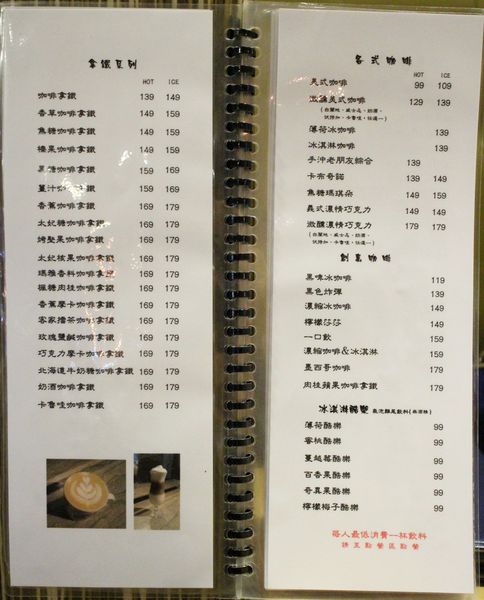 拿鐵系列
HOT ICE
咖啡拿鐵 139 149
香草咖啡拿鐵 149 159
焦糖咖啡拿鐵 149 159
榛果咖啡拿鐵 149 159
黑糖咖啡拿鐵 159 169
薑汁咖啡拿鐵 159 169
香蕉咖啡拿鐵 169 179
太妃糖咖啡拿鐵 169 179
烤堅果咖啡拿鐵 169 179
太妃核果咖啡拿鐵 169 179
瑪雅香料咖啡拿鐵 169 179
楓糖肉桂咖啡拿鐵 169 179
香蕉摩卡咖啡拿鐵 169 179
客家擂茶咖啡拿鐵 169 179
玫瑰鹽鹹咖啡拿鐵 169 179
巧克力摩卡咖啡拿鐵 169 179
北海道牛奶糖咖啡拿鐵 169 179
奶酒咖啡拿鐵 169 179
卡魯哇咖啡拿鐵 169 179
各式咖啡
HOT ICE
美式咖啡 99 109
微醺美式咖啡 129 139
(白蘭地、威士忌、奶酒、
伏特加、卡魯哇,任選一)
薄荷冰咖啡 139
冰淇淋咖啡 139
手沖老朋友綜合 139
卡布奇諾 139 149
焦糖瑪琪朵 149 159
義式濃情巧克力 149 149
微醺濃情巧克力 179 179
(白蘭地、威士忌、奶酒、
伏特加、卡魯哇,任選一)
創意咖啡
黑啤冰咖啡 119
黑色炸彈 139
濃縮冰咖啡 149
檸檬莎莎 149
一口飲 159
濃縮咖啡&冰淇淋 159
墨西哥咖啡 179
肉桂蘋果咖啡拿鐵 179
薄荷酷樂 99
蜜桃酷樂 99
蔓越莓酷樂 99
百香果酷樂 99
奇異果酷樂 99
檸檬梅子酷樂 99
每人最低消費一杯飲料
請至點餐區點餐